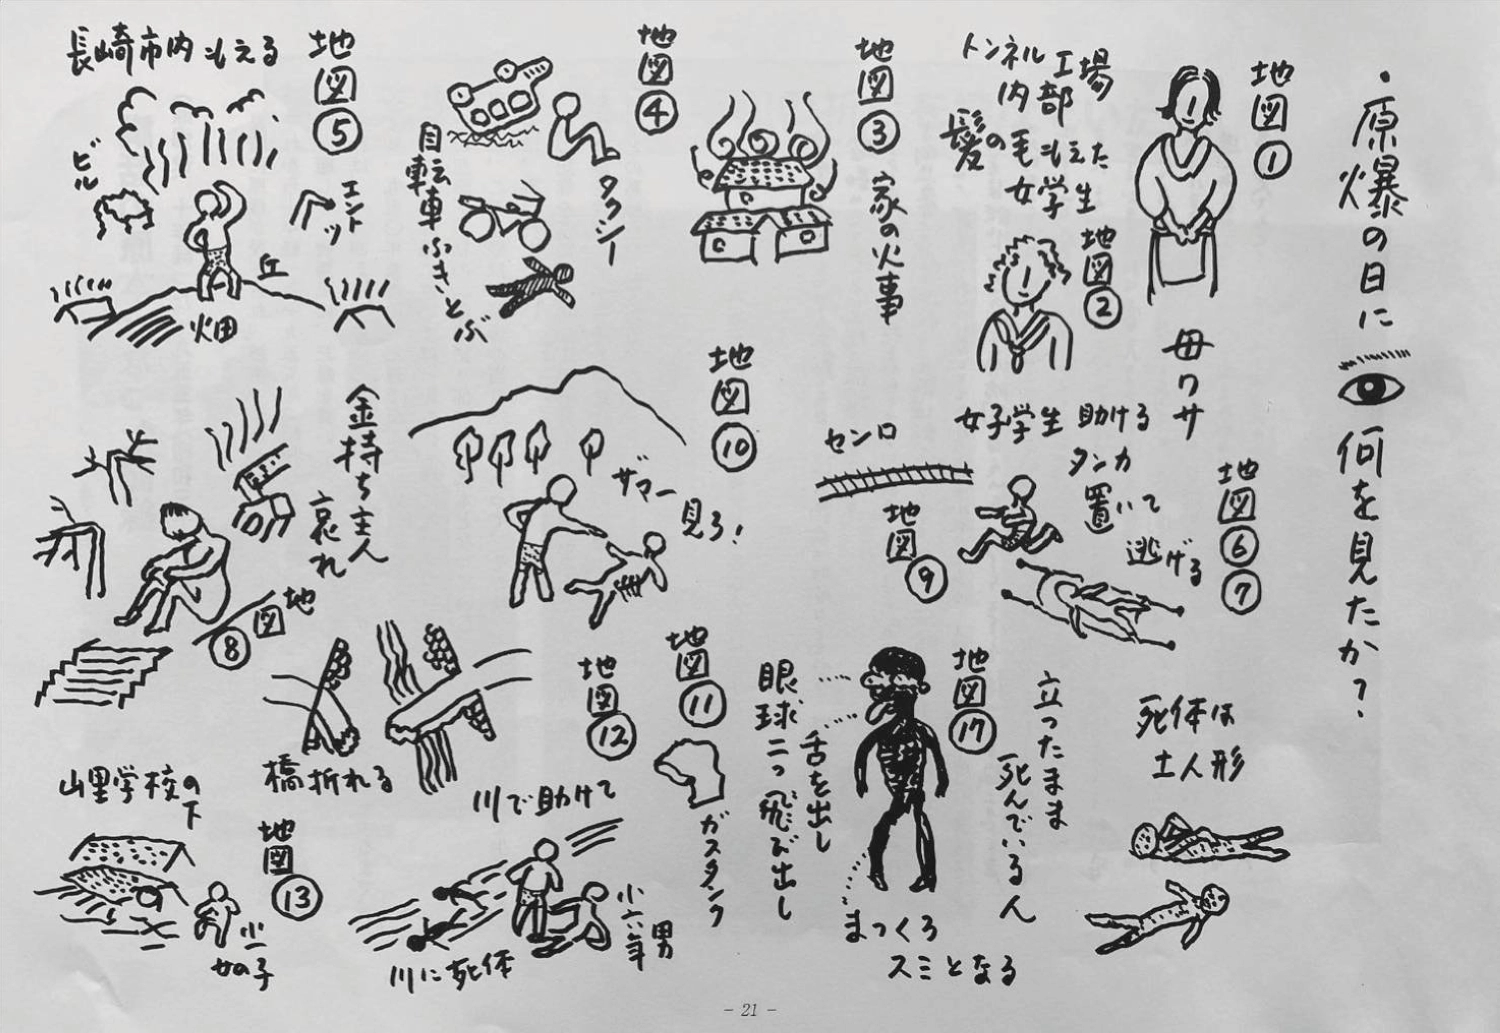 ・原爆の日に何を見たか？
地図①
母ワサ
トンネル工場
内部
髪の毛もえた
女学生
地図②
地図③
家の火事
地図④
タクシー
自転車ふきとぶ
地図⑤
長崎市内もえる
ビル
エントツ
丘
畑
地図⑥⑦
女子学生助ける
タンカ
置いて
逃げる
センロ
地図⑨
地図⑩
ザマー
見ろ！
金持ち主人
哀れ
地図⑧
死体は
土人形
地図⑰
立ったまま
死んでいる人
舌を出し
眼球二つ飛び出し
まっくろ
スミとなる
地図⑪
ガスタンク
地図⑫
橋折れる
川で助けて
小六年男
川に死体
地図⑬
山里学校の下
小一
女の子
- 21 -